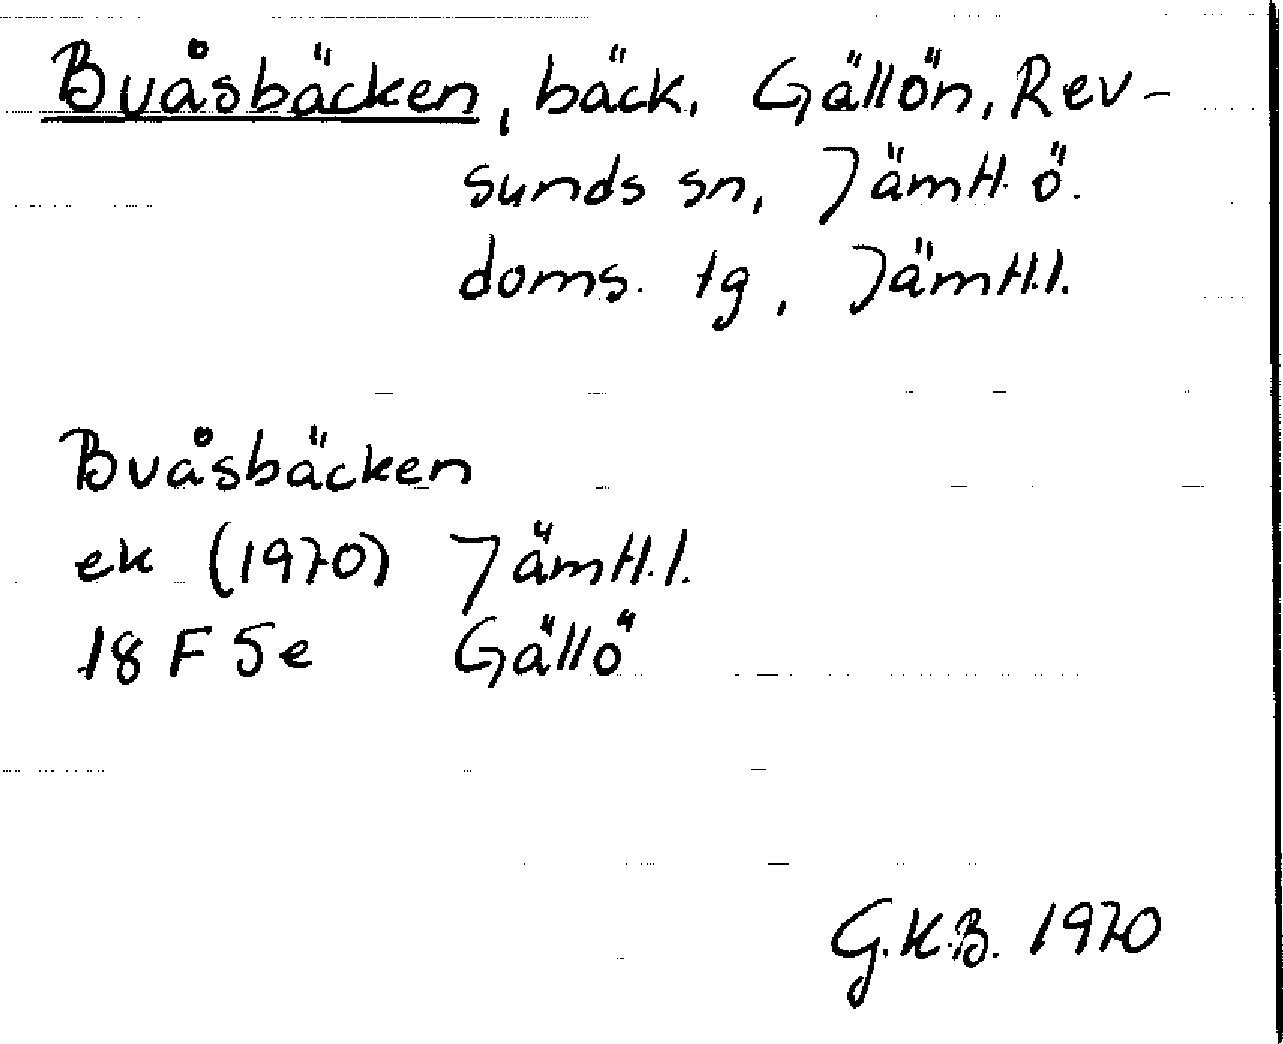 Buåsbäcken, bäck. Gällön, Rev-
sunds sn, Jämtl. ö.
doms. tg, Jämtl.l.
Buåsbäcken
ek (1970) Jämtl.l.
18 F 5e Gällö
G.K.B. 1970